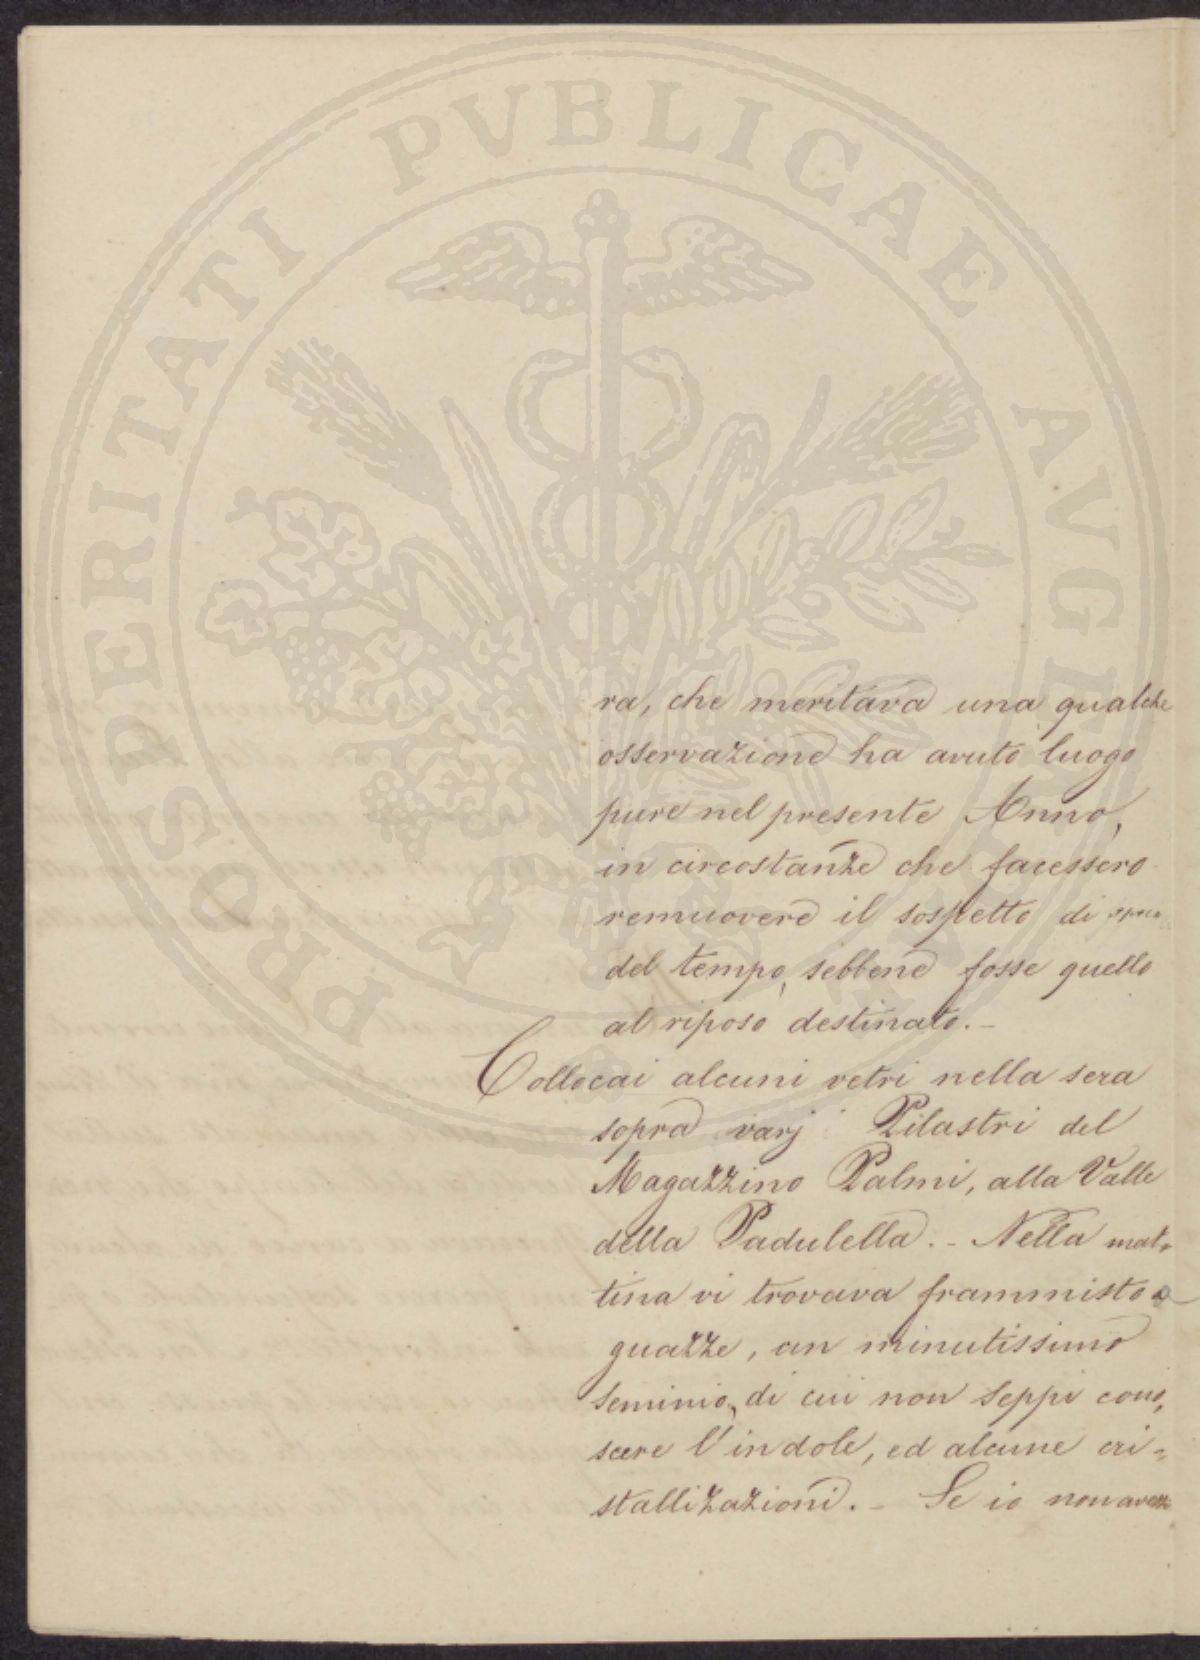 PROSPERITATI PVBLICAE AVGENDAE
ra, che meritava una qualche
osservazione ha avuto luogo
pure nel presente Anno,
in circostanze che facessero
remuovere il sospetto di
del tempo, sebbene fosse quello
al riposo destinato. -
Collocai alcuni vetri nella sera
sopra varj Pilastri del
Magazzino Palmi, alla Valle
della Padulella. - Nella mat,
tina vi trovava frammisto a
guazze, un minutissimo
seminio, di cui non seppi cono,
scere l'indole, ed alcune cri=
stallizazioni. - Se io non avessi